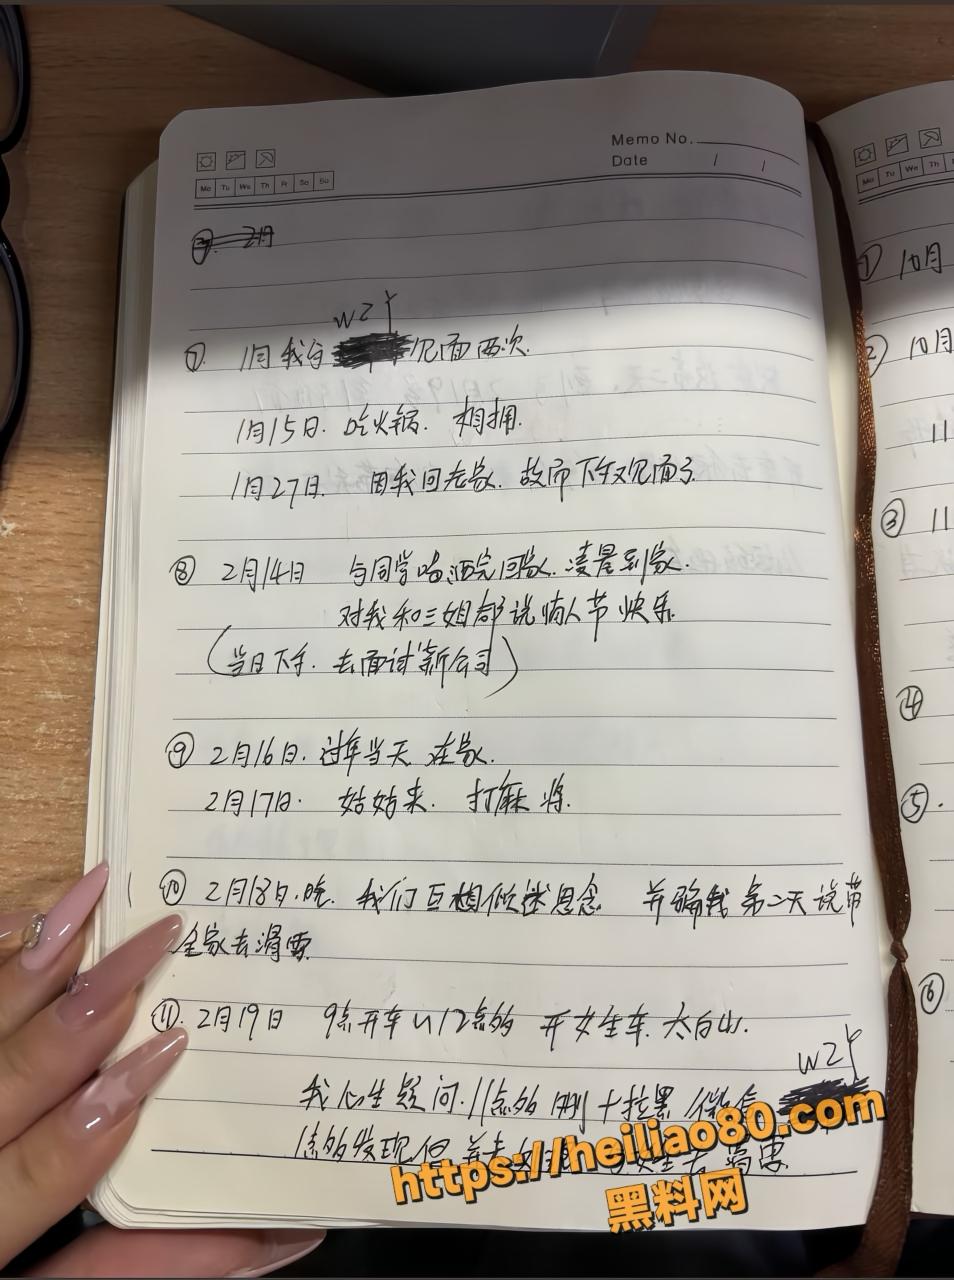 Memo No.
Date / /
Mo Tu We Th Fr Sa Su
⑦ 2月
wzy
⑦ 1月我与 见面两次.
1月15日. 吃火锅. 相拥.
1月27日. 因我回老家. 故而下午又见面了
⑧ 2月14日 与同学喝酒完回家. 凌晨到家.
对我和三姐都说情人节快乐
(当日下午. 去面试新公司)
⑨ 2月16日. 过年当天 在家.
2月17日. 姑姑来. 打麻将.
⑩ 2月18日.晚. 我们互相 思念 并骗我第二天说带
全家去滑雪
⑪. 2月19日 9点开车 12点多 开女生车. 太白山.
wzy
我心生疑问. 11点多 删+拉黑 微信
点多发现 滑雪
https://heiliao80.com
黑料网
Mo Tu We Th
① 10月
② 10月
11
③ 11
④
⑤.
⑥